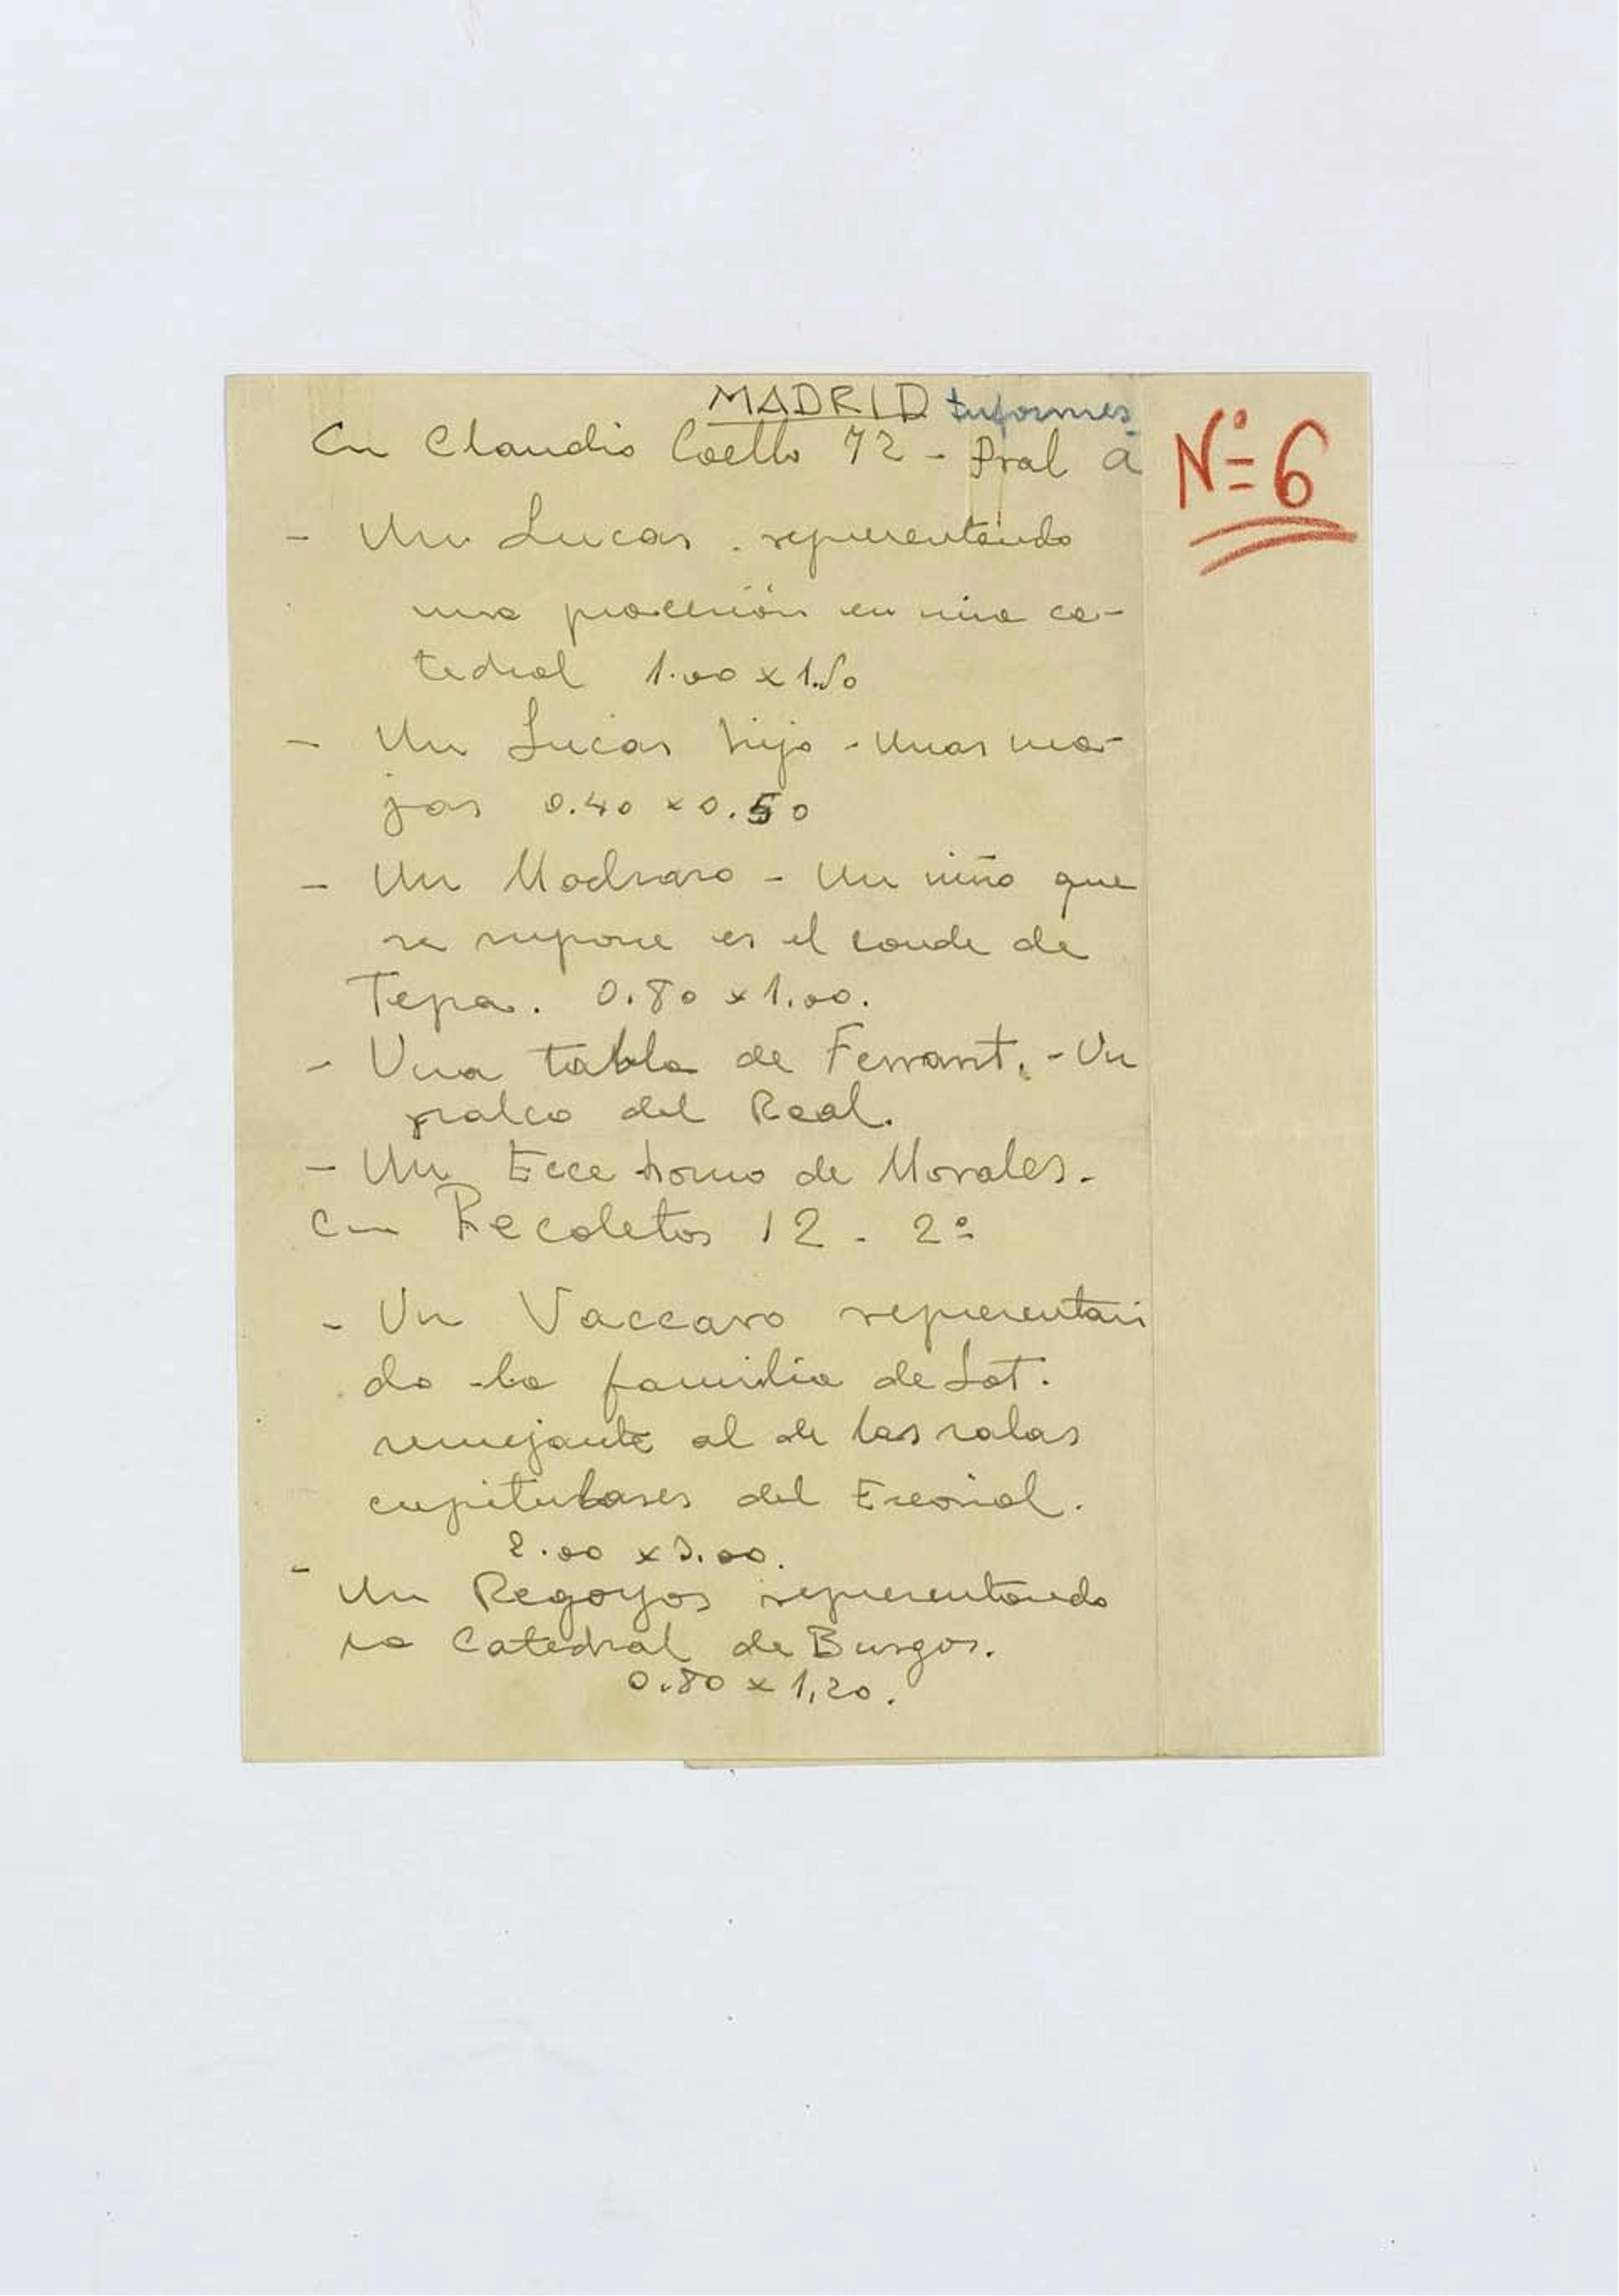 MADRID Informes
Nº 6
En Claudio Coello 72 - Pral A
- Un Lucas . representando
una procesión en una ca-
tedral 1.00 x 1.50
- Un Lucas hijo - Unas ma-
jas 0.40 x 0.50
- Un Madrazo - Un niño que
se supone es el conde de
Tepa. 0.80 x 1.00.
- Una tabla de Ferrant. - Un
palco del Real.
- Un Ecce homo de Morales.
En Recoletos 12 - 2º
- Un Vaccaro representan
do la familia de Lot.
semejante al de las salas
capitulares del Escorial.
2.00 x 3.00.
- Un Regoyos representando
la Catedral de Burgos.
0.80 x 1,20.